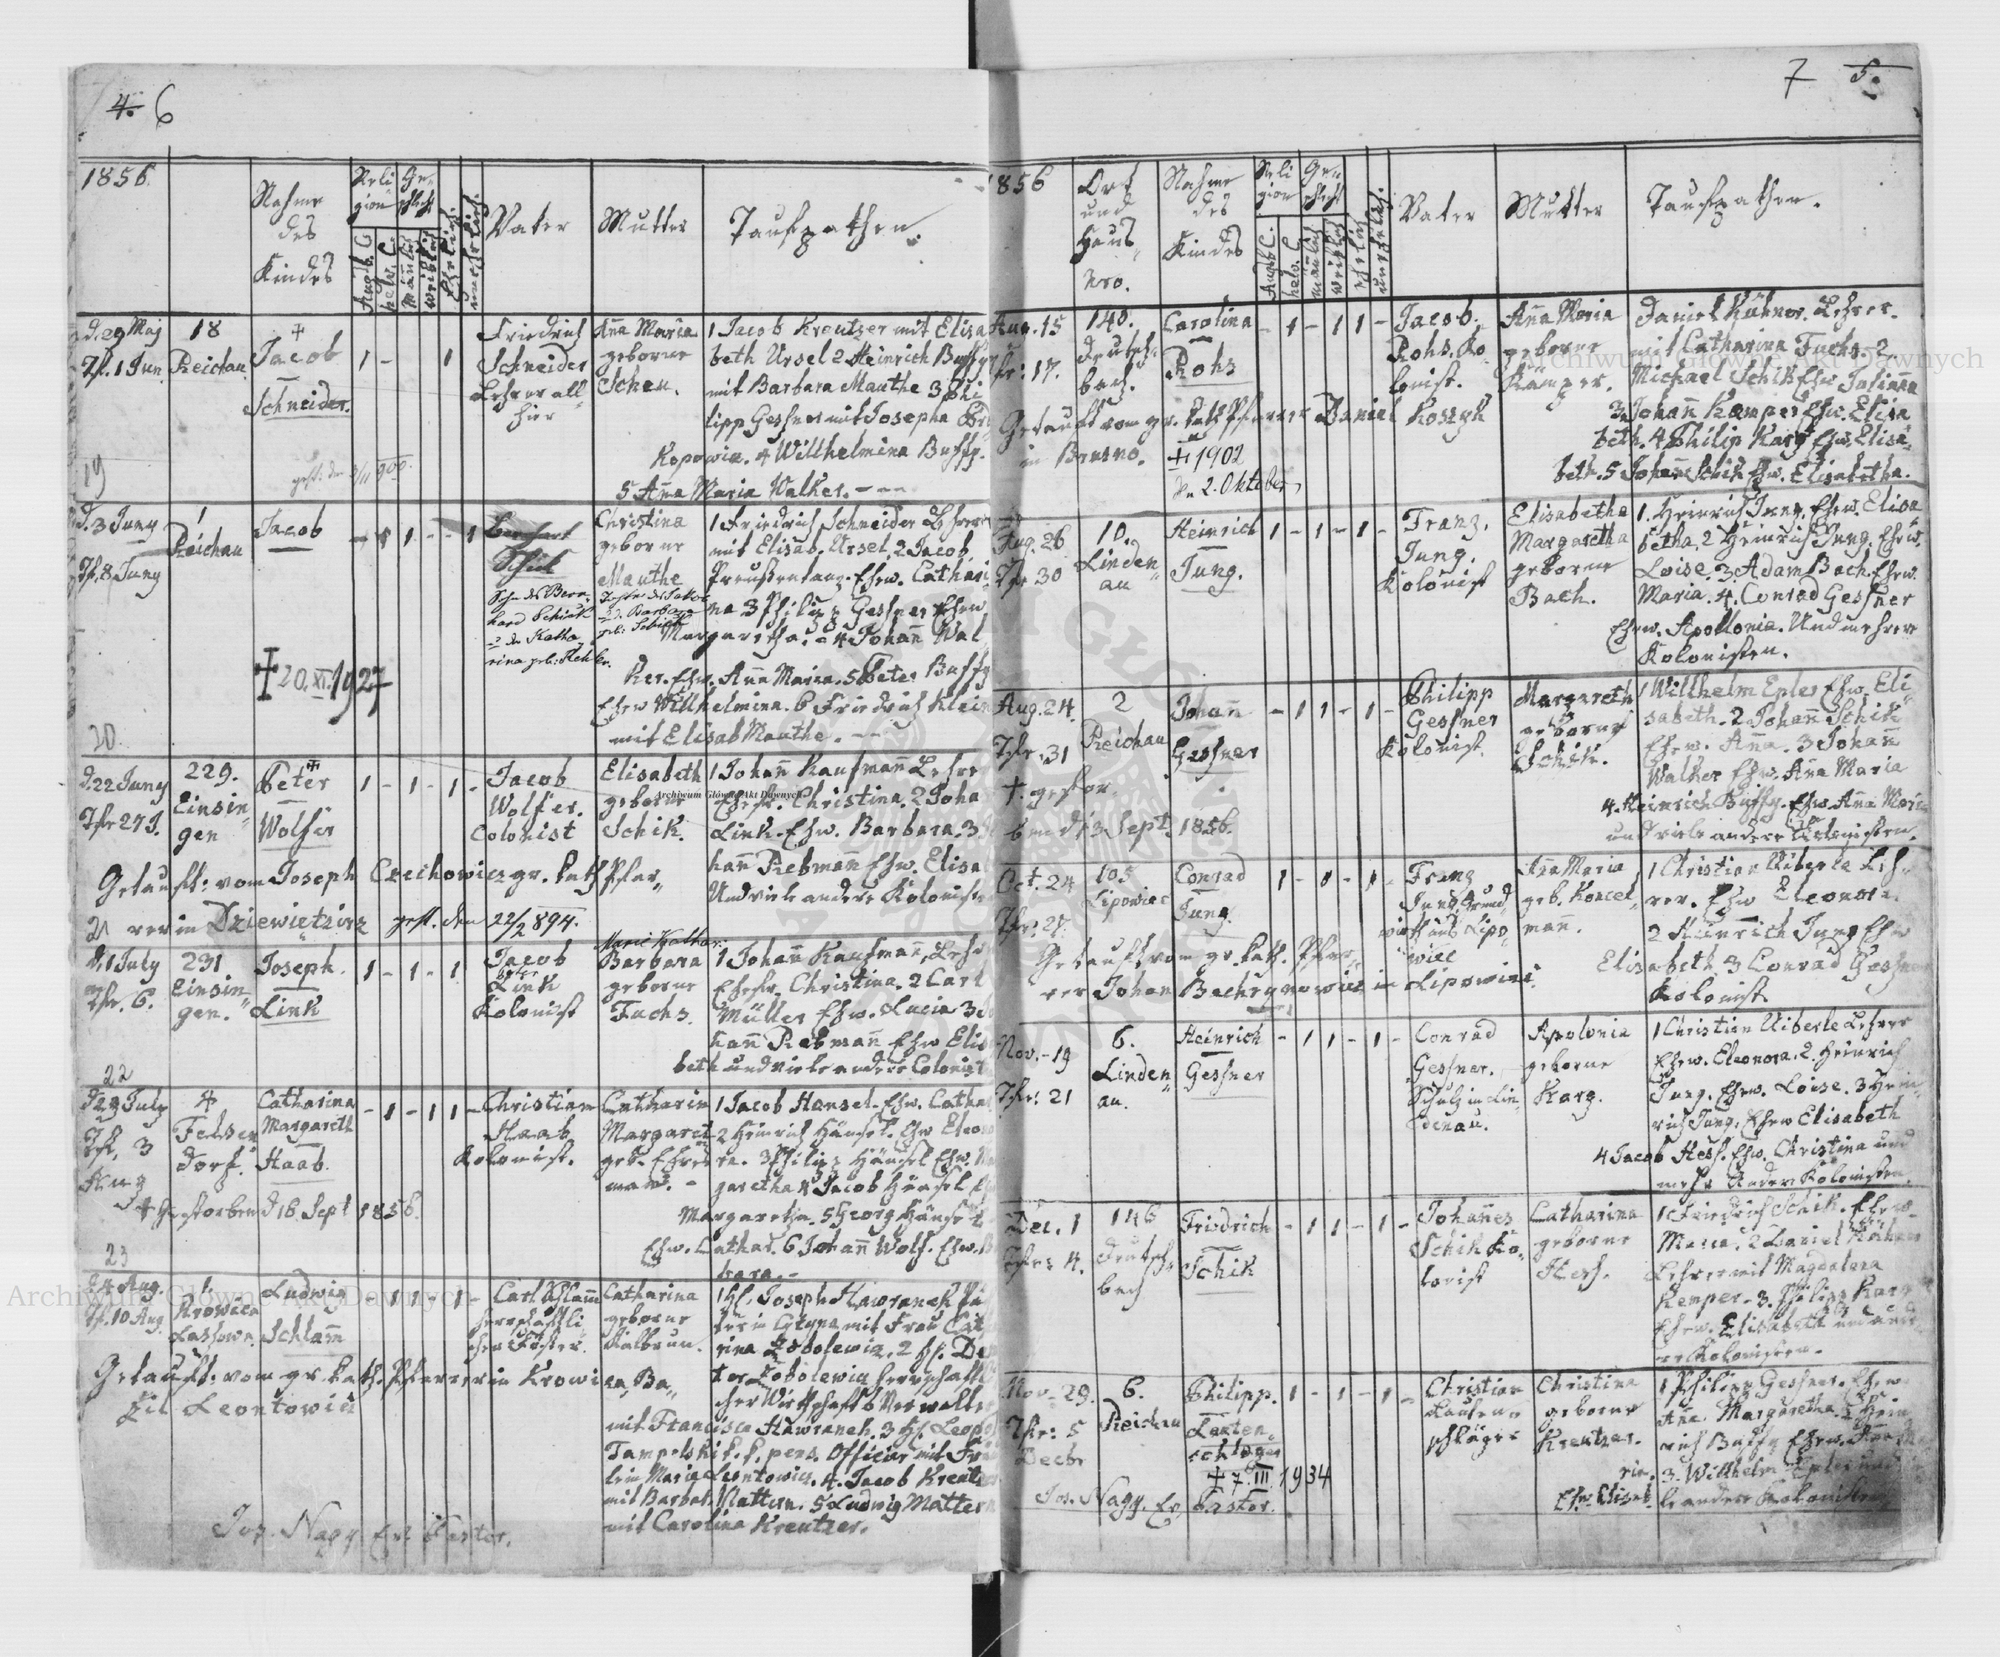 4. 6
1856.
Nahme
des
Kindes
Reli
gion
Augsb. C.
helv. C.
Ge-
schlecht
männlich
weiblich
Ehelich.
unehelich.
Vater
Mutter
Taufpathen.
d. 29 May
Tf. 1 Jun.
18
Reichau
Jacob
Schneider.
1 - 1
Friedrich
Schneider
Lehrer all
hier
Anna Maria
geborne
Schen.
1 Jacob Kreutzer mit Elisa
beth Ursel 2 Heinrich Buffy
mit Barbara Mauthe 3 Phi
lipp Gessner mit Josepha
Kopowia. 4 Willhelmina Buffy.
5 Anna Maria Walker. - - -
19
d. 3 Juny
Tf. 8 Juny
1
Reichau
Jacob
- 1 1 - - 1
Schik
Sohn des Bern-
hard Schick
u. der Katha
rina geb.
Christina
geborne
Mauthe
Tochter des Jakob
u. d. Barbara
geb. Schick
1 Friedrich Schneider Lehrer
mit Elisab. Ursel. 2 Jacob
Ehew. Cathari
na 3 Philipp Gessner Ehew
Margaretha. - 4 Johann Wal
ker. Ehw. Anna Maria. 5 Peter Buffy
Ehew Willhelmina. 6 Friedrich Klein
mit Elisab Mauthe. - -
+ 20. XI. 1927
20
d. 22 Juny
Tfr 27 J.
229.
Einsin
gen
Peter
Wolfer
1 - 1 - 1 -
Jacob
Wolfer.
Colonist
Elisabeth
geborne
Schik.
1 Johann Kaufmann Lehre
Ehefr. Christina. 2 Joha
Link. Ehw. Barbara. 3
hann Rebmann Ehw. Elisab
Und viele andere Koloniste
Getauft: vom Joseph Czechowicz gr. kath Pfar-
rer in gest. den 22/2 894.
21
d. 1 July
Tfr. 6.
231
Einsin
gen.
Joseph.
Link
1 - 1 - 1
Jacob
Peter
Link
Kolonist
Marie Kathar.
Barbara
geborne
Fuchs.
1 Johann Kaufmann, Lehr
Ehefr. Christina. 2 Carl
Müller Ehw. Lucia 3
hann Rebmann Ehw Elisa
beth und viele andere Colonist
22
d. 29 July
Tfr. 3
Aug
4
Felsen
dorf.
Catharina
Margareth
Haab.
- 1 - 1 1 -
Christian
Haab
Kolonist.
Catharin
Margaret
geb. Ehres
man. -
1 Jacob Hansel. Ehw. Cathar
2 Heinrich Hänsel. Ehw Eleono
ra. 3 Philipp Hänsel Ehw. Ma
garetha 4 Jacob Hänsel
Margaretha. 5 Georg Hänsel
Ehw. Cathar. 6 Johann Wolf. Ehw. B
bara. -
+ Gestorben d 16. Sept 1856.
23
d 4 Aug.
Tf. 10 Aug.
Krowica
Lassowa.
Ludwig
Schlamm
- 1 1 - 1 -
Carl Schlamm
herrschaftli
cher Förster.
Catharina
geborne
Kalbrun.
1 H. Joseph Hawranek
ter in mit Frau Cat
rina 2 H.
tor herrschaftli
cher Wirthschafts Verwalter
mit Francisca Hawranek. 3 H. Leopo
k. k. pens. Officier mit Fräu
lein Maria Leontowicz. 4. Jacob Kreutzer
mit Barbar. Mattern. 5 Ludwig Mattern
mit Carolina Kreutzer.
Getauft: vom gr. kath. Pfarrer in Krowica, Ba-
sil Leontowicz
Jos. Nagy Ev. Pastor.
7 5.
1856
Ort
und
Haus-
nro.
Nahme
des
Kindes
Reli
gion
Augsb C.
helv. C.
Ge-
schlecht
mänlich
weiblich
ehelich
unehelich.
Vater
Mutter
Taufpathen.
Aug. 15
Tfr: 17.
140.
Deutsch-
bach.
Carolina
Rohs
- 1 - 1 1 -
Jacob.
Rohs. Ko-
lonist.
Anna Maria
geborne
Kämper.
Daniel Kühner. Lehrer.
mit Catharina Fuchs. 2
Michael Schik Ehw Julianna
3 Johann Kamper Ehw. Elisa
beth. 4 Philip Karg Ehw. Elisa-
beth. 5 Johann Schik Ehw. Elisabetha.
Getauft vom gr. kath Pfarrer Daniel Koszyk
in Brusno.
+ 1902
den 2. Oktober
Aug. 26
Tfr 30
10.
Linden-
au
Heinrich
Jung.
1 - 1 - 1 -
Franz.
Jung.
Kolonist
Elisabetha
Margaretha
geborne
Bach.
1. Heinrich Jung, Ehew. Elisa
betha. 2 Heinrich Jung. Ehew.
Loise. 3 Adam Bach. Ehw.
Maria. 4. Conrad Gessner
Ehew. Apollonia. Und mehrere
Kolonisten.
Aug. 24.
Tfr. 31
2
Reichau
Johann
Gessner
- 1 1 - 1 -
Philipp
Gessner
Kolonist.
Margareth
geborne
Schik.
1 Willhelm Epler Ehw. Eli
sabeth. 2 Johann Schik
Ehew. Anna. 3 Johann
Walker Ehw. Anna Maria
4. Heinrich Buffy. Ehw. Anna Maria
und viele andere Kolonisten.
+ gestor-
ben d 13 Sept 1856.
Oct. 24
Tfr: 27.
105
Lipowiec
Conrad
Jung.
1 - 1 - 1 -
Franz
Jung Grund-
wirth aus Lipo-
wiec
Anna Maria
geb. Koncel-
mann.
1 Christian Uiberle Leh-
rer. Ehw Eleonora.
2 Heinrich Jung Ehw
Elisabeth 3 Conrad Gessner
Kolonist
Getauft vom gr. kath. Pfar-
rer Johan in Lipowiec.
Nov. - 19
Tfr: 21
6.
Linden
au.
Heinrich
Gessner
- 1 1 - 1 -
Conrad
Gessner.
Schulz in Lin-
denau.
Apolonia
geborne
Karg.
1 Christian Uiberle Lehrer
Ehew. Eleonora. 2. Heinrich
Jung. Ehew. Loise. 3 Hein-
rich Jung. Ehew Elisabeth
4 Jacob Hess. Ehw. Christina und
mehr Ander Kolonisten.
Dec. 1
Tfr: 4.
146
Deutsch-
bach
Friedrich
Schik
- 1 1 - 1 -
Johannes
Schik Ko-
lonist
Catharina
geborne
Hess.
1 Friedrich Schik. Ehew.
Maria. 2 Daniel Kühner
Lehrer mit Magdalena
Kemper. 3. Philipp Karg
Ehew. Elisabeth und ande-
re Kolonisten.
Nov. 29.
Tfr: 5
Decbr
6.
Reichau
Philipp.
Lauten-
schlager
1 - 1 - 1 -
Christian
Lauten-
schläger
Christina
geborne
Kreutzer.
1 Philipp Gessner. Ehew
Ana. Margaretha. 2 Hein
rich Buffy Ehew. Anna Ma
ria. 3. Willhelm Epler und
Ehw. Elisab. andere Kolonisten
+ 7. III. 1934
Jos. Nagy. Ev. Pastor.
Archiwum Główne Akt Dawnych
Archiwum Główne Akt Dawnych
Archiwum Główne Akt Dawnych